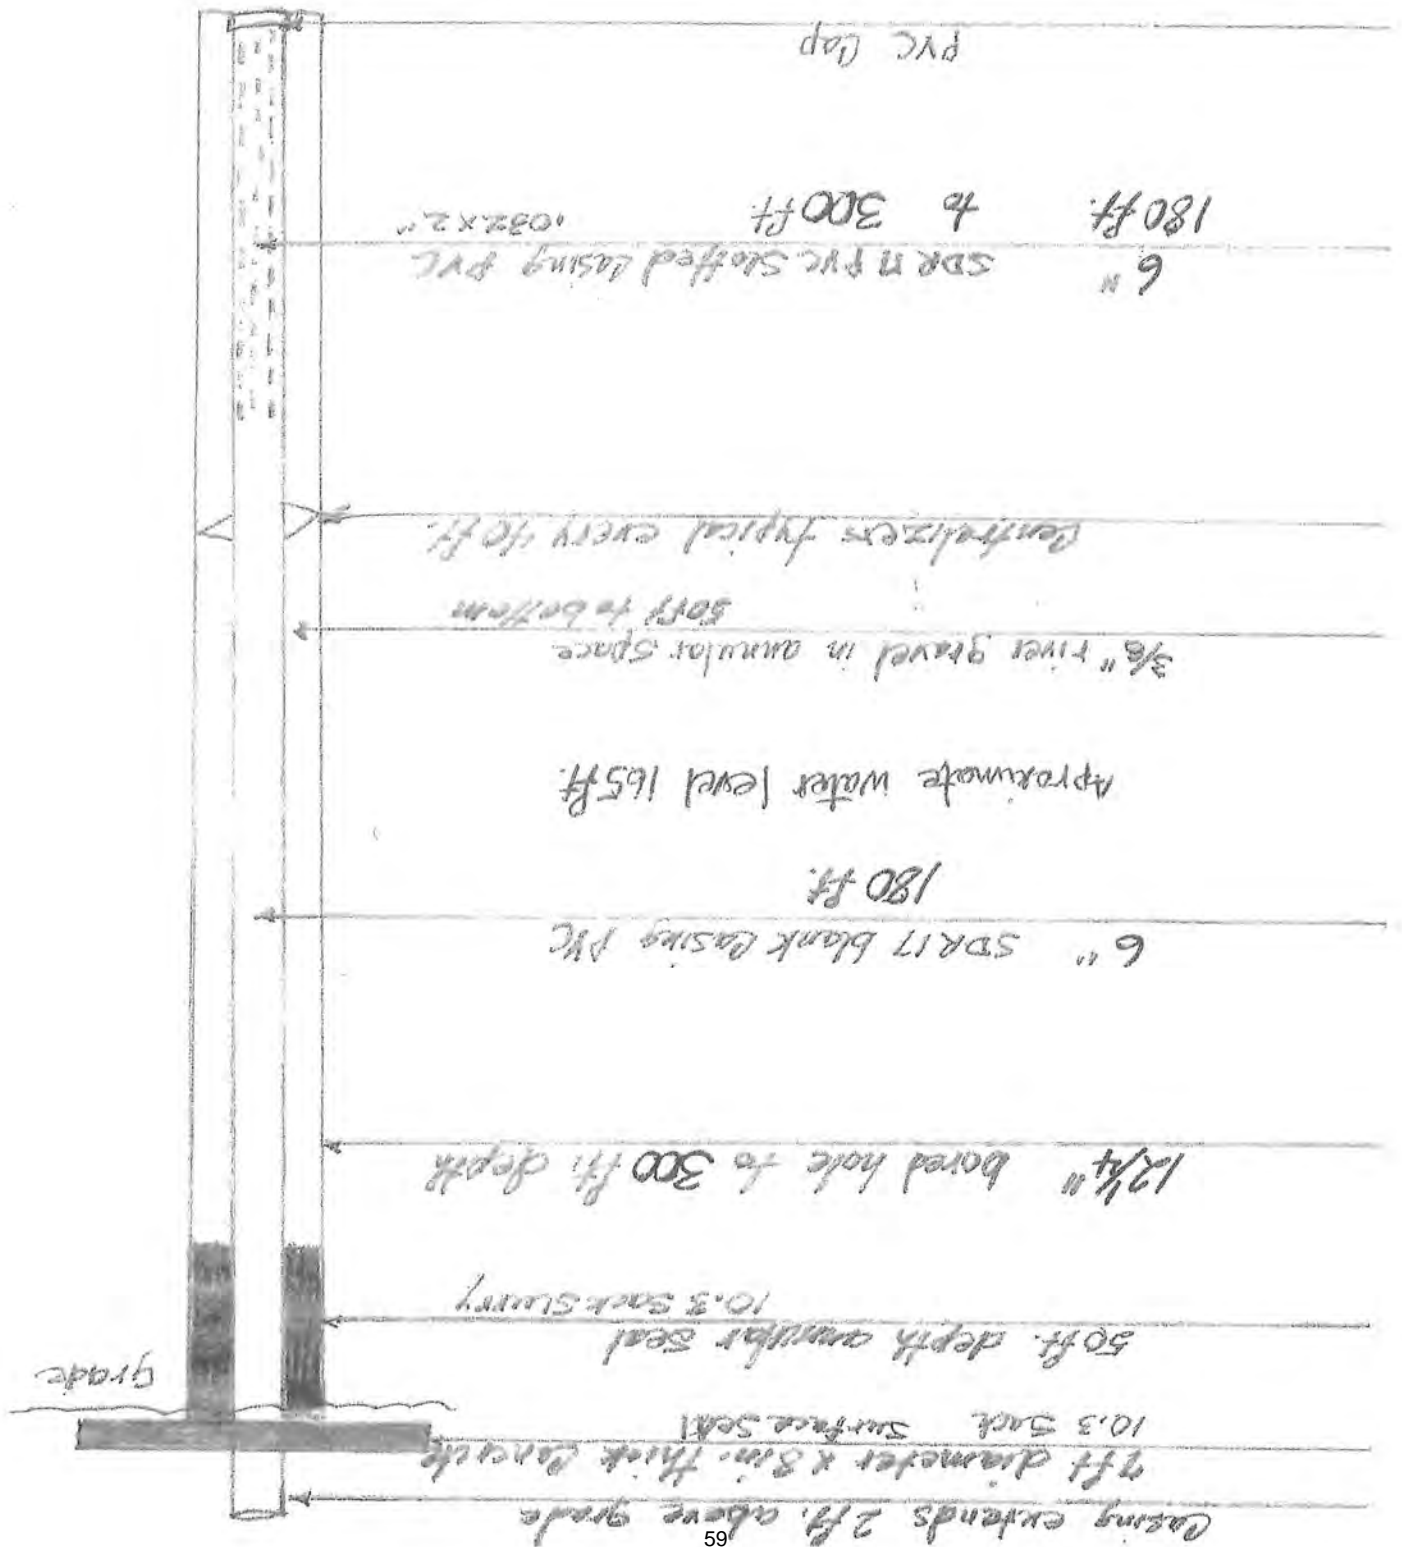 Casing extends 2 ft. above grade
7 ft diameter x 8 in. thick Concrete
10.3 Sack Surface Seal
grade
50 ft. depth annular seal
10.3 Sack Slurry
12 1/4" bored hole to 300 ft. depth
6" SDR 17 blank Casing PVC
180 ft.
Aproximate water level 165 ft.
3/8" river gravel in annular space
50 ft to bottom
Centralizers typical every 40 ft.
6" SDR 17 PVC Slotted Casing PVC
180 ft. to 300 ft. .032 x 2"
PVC Cap
59